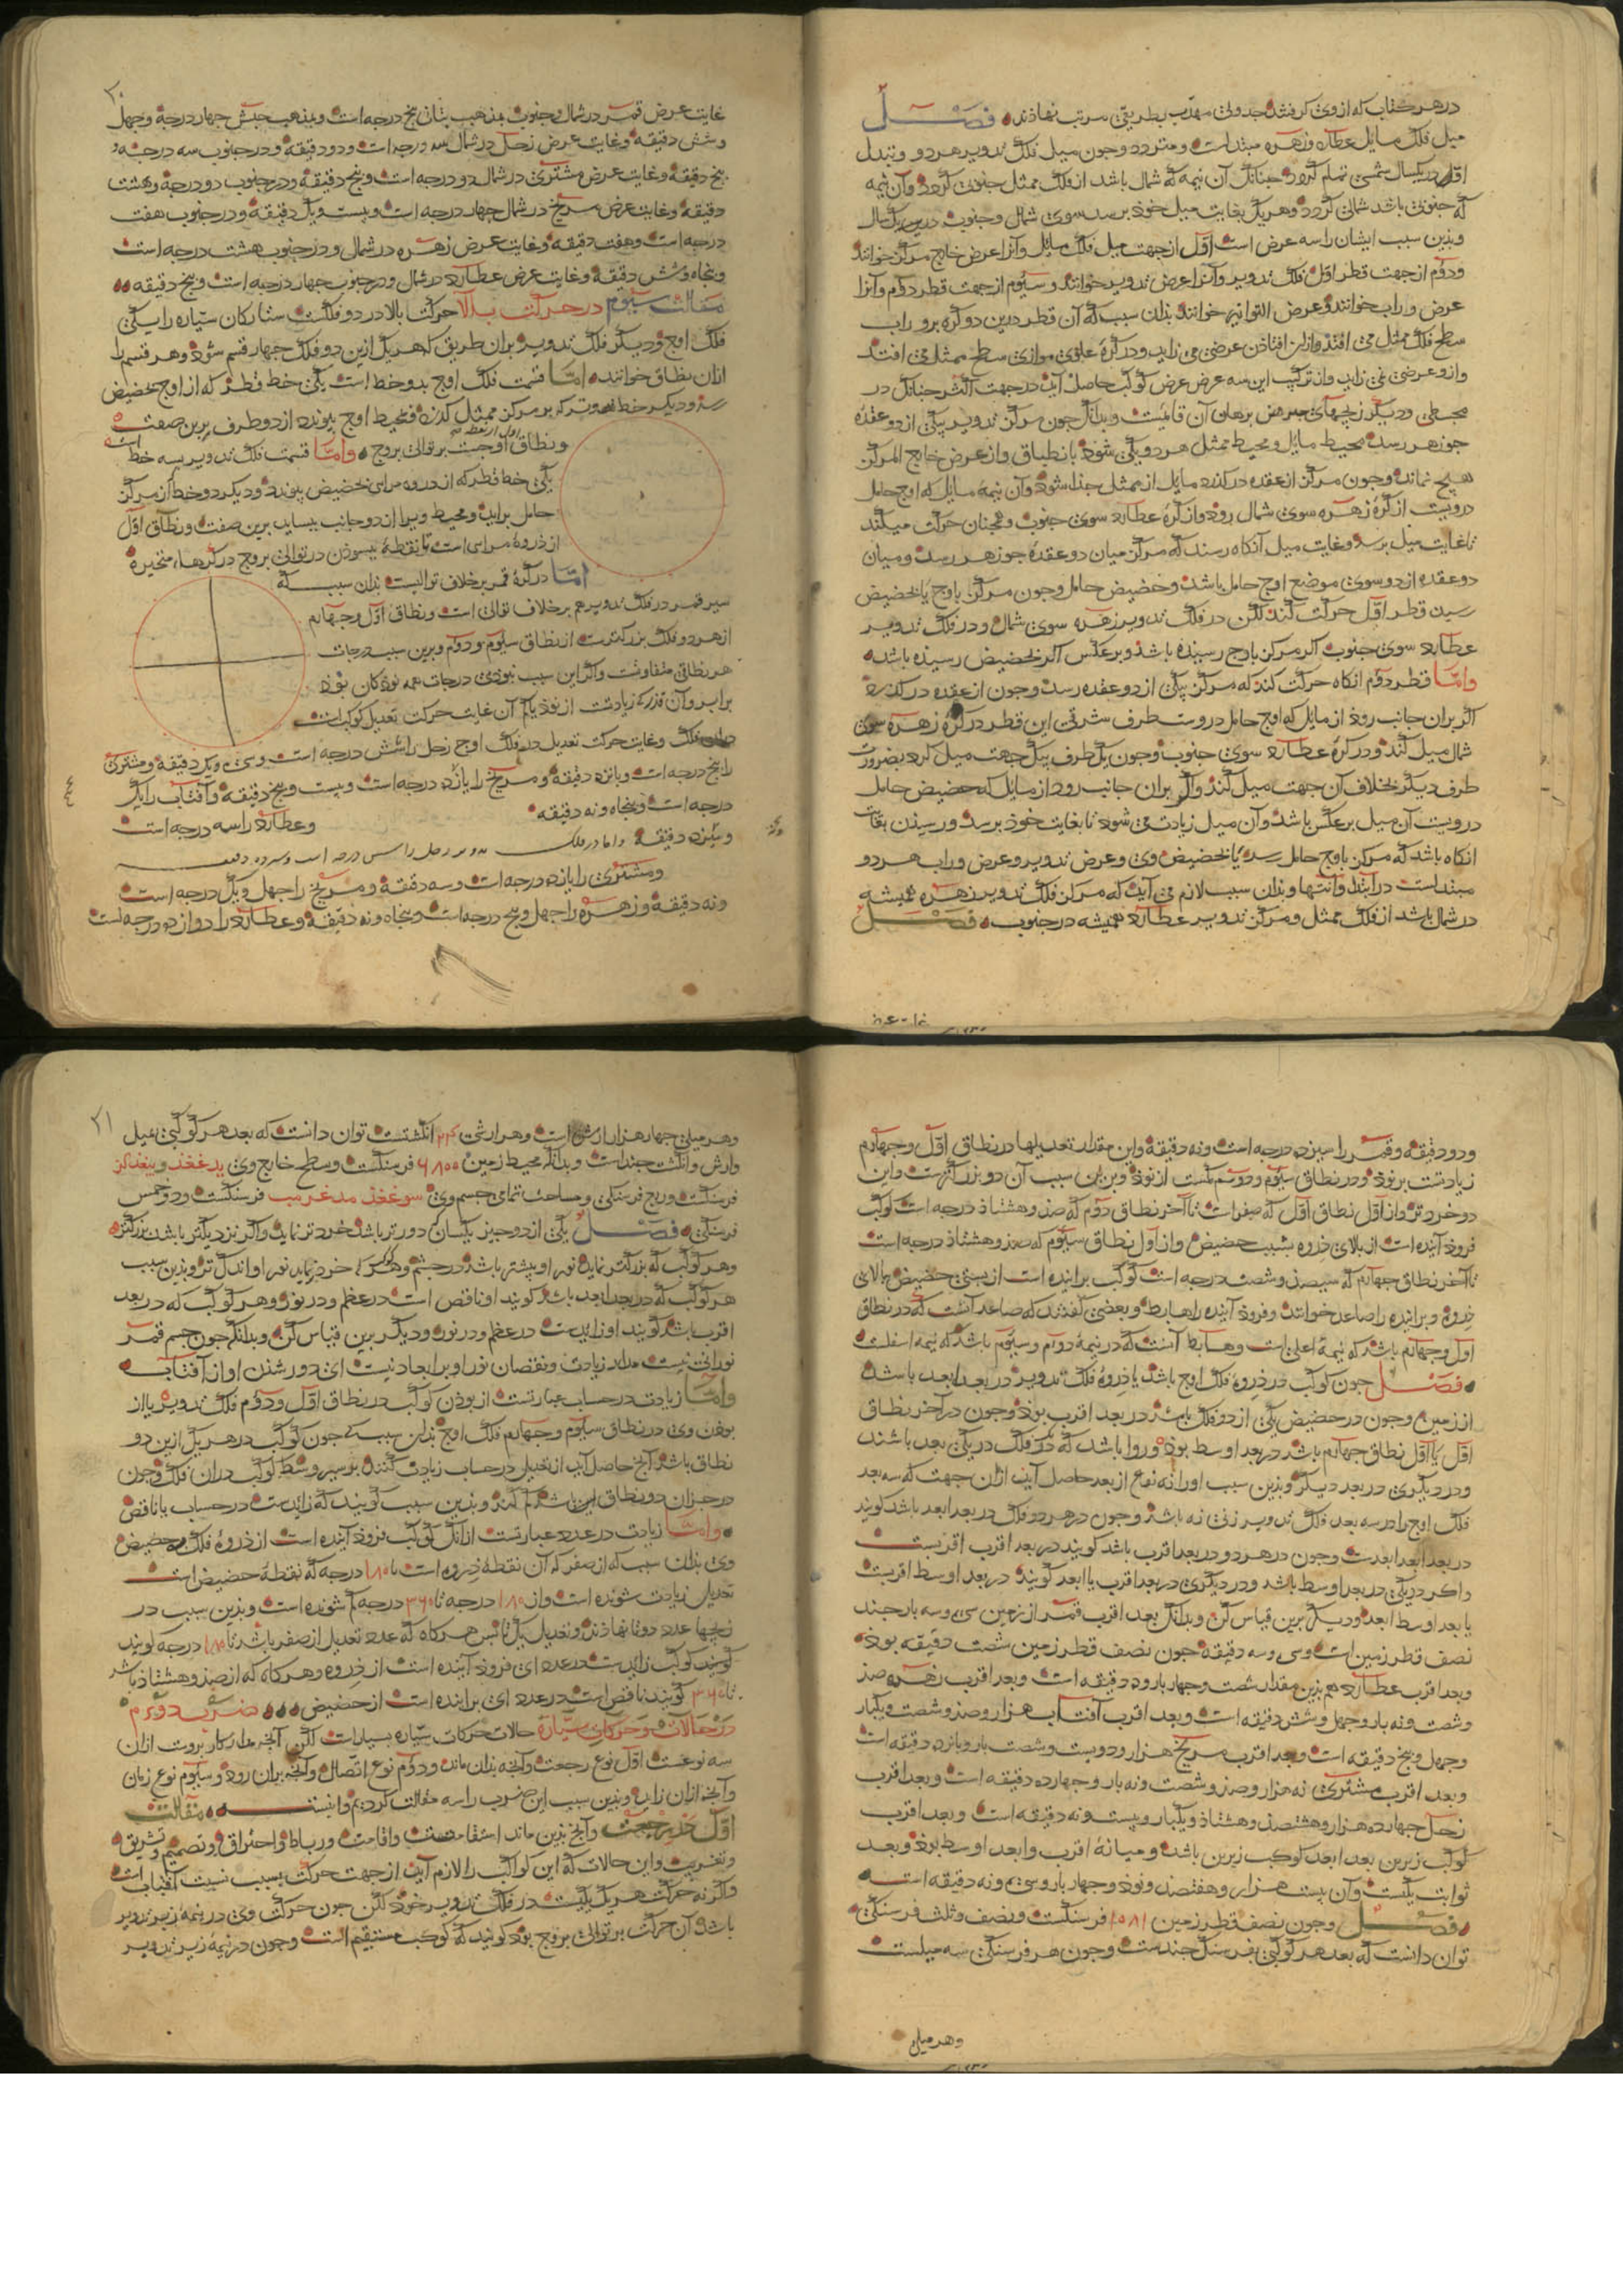 در هر کتاب که از وی کرفتند جدولی مهذب بطریقی مرتب نهاذند فصل
میل فلک مایل عطارد و زهره مبتدلست و متردد و جون میل فلک تدویر هر دو و تبدل
اول در یکسال شمسی تمام کردد جنانک آن نیمه که شمال باشد از فلک ممثل جنوبی کردد و آن نیمه
که جنوبی باشد شمالی کردد و هر یک بغایت میل خود برسد سوی شمال و جنوب در یکسال
و بذین سبب ایشان را سه عرض است اول از جهت میل فلک مایل و آنرا عرض خارج مرکز خوانند
و دوم از جهت قطر اول فلک تدویر و آنرا عرض تدویر خوانند و سیوم از جهت قطر دوم و آنرا
عرض وراب خوانند و عرض التوا نیز خوانند بذان سبب که آن قطر درین دو کره بر وراب
سطح فلک ممثل می افتد و از این افتاذن عرضی می زاید و در کره علوی موازی سطح ممثل می افتد
و ازو عرضی نمی زاید و از ترکیب این سه عرض عرض کوکب حاصل آید در جهت اکثر جنانک در
مجسطی و دیکر زیجهای برهان آن قایمست و بدانک جون مرکز تدویر بیکی از دو عقده
جوزهر رسد محیط مایل و محیط ممثل هر دو یکی شوذ بانطباق و از عرض خارج المرکز
هیچ نماند و جون مرکز از عقده در کذرد مایل از ممثل جذا شوذ و آن نیمه مایل که اوج حامل
درویست از کره زهره سوی شمال روذ و از کره عطارد سوی جنوب و همجنان حرکت میکند
تا غایت میل برسد و غایت میل آنکاه رسند که مرکز میان دو عقده جوزهر رسد و میان
دو عقده از دو سوی موضع اوج حامل باشد و حضیض حامل و جون مرکز باوج یا بحضیض
رسید قطر اول حرکت کند لکن در فلک تدویر زهره سوی شمال و در فلک تدویر
عطارد سوی جنوب اکر مرکز باوج رسیذه باشد و بر عکس اکر بحضیض رسیذه باشد
واما قطر دوم انکاه حرکت کند که مرکز بیکی از دو عقده رسد و جون از عقده در کذرد
اکر بران جانب روذ از مایل که اوج حامل دروست طرف شرقی این قطر در کره زهره سوی
شمال میل کند و در کره عطارد سوی جنوب و جون یک طرف بیک جهت میل کرد بضرورت
طرف دیکر بخلاف آن جهت میل کند و اکر بران جانب روذ از مایل که حضیض حامل
درویست آن میل بر عکس باشد و آن میل زیادت می شوذ تا بغایت خوذ برسد و رسیدن بغایت
انکاه باشد که مرکز باوج حامل رسد یا بحضیض وی و عرض تدویر و عرض وراب هر دو
مبتداست در ابتدا و انتها و بذان سبب لازم می آید که مرکز فلک تدویر زهره همیشه
در شمال باشد از فلک ممثل و مرکز تدویر عطارد همیشه در جنوب فصل
غایت عرض
٢٠
غایت عرض قمر در شمال و جنوب بمذهب بتانی پنج درجه است و بمذهب حبش جهار درجه و جهل
و شش دقیقه و غایت عرض زحل در شمال سه درجه است و دو دقیقه و در جنوب سه درجه و
پنج دقیقه و غایت عرض مشتری در شمال دو درجه است و پنج دقیقه و در جنوب دو درجه و هشت
دقیقه و غایت عرض مریخ در شمال جهار درجه است و بیست و یک دقیقه و در جنوب هفت
درجه است و هفت دقیقه و غایت عرض زهره در شمال و در جنوب هشت درجه است
و پنجاه و شش دقیقه و غایت عرض عطارد در شمال و در جنوب جهار درجه است و پنج دقیقه
مقالت سیوم در حرکت بالا حرکت بالا در دو فلکست ستارکان سیاره را یکی
فلک اوج و دیکر فلک تدویر و بران طریق که هر یک ازین دو فلک جهار قسم شوذ و هر قسم را
ازان نطاق خوانند اما قسمت فلک اوج بدو خط است یکی خط قطر که از اوج بحضیض
رسد و دیکر خط که بر مرکز ممثل کذرد و بمحیط اوج پیوندد از دو طرف برین صفت
و نطاق اول از نقطه اوجست بر توالی بروج و اما قسمت فلک تدویر بسه خط است
یکی خط قطر که از ذروه مرایی بحضیض پیوندد و دیکر دو خط از مرکز
حامل براید و محیط ویرا از دو جانب بساید برین صفت و نطاق اول
از ذروه مرایی است تا نقطه بسوذن در توالی بروج در کرها متحیره
اما در کره قمر بر خلاف توالیست بذان سبب که
سیر قمر در فلک تدویر هم بر خلاف توالی است و نطاق اول و جهارم
از هر دو فلک بزرکترست از نطاق سیوم و دوم و برین سبب درجات
هر نطاقی متفاوتست و اکر این سبب نبوذی درجات همه نوذکان بوذ
برابر و آن قدر که زیادتست از نوذ یا کم آن غایت حرکت تعدیل کوکب است
دران فلک و غایت حرکت تعدیل در فلک اوج زحل را شش درجه است و سی و یک دقیقه و مشتری
را پنج درجه است و پانزده دقیقه و مریخ را یازده درجه است و بیست و پنج دقیقه و آفتاب را یک
درجه است و پنجاه و نه دقیقه و عطارد را سه درجه است
و سیزده دقیقه و اما در فلک تدویر زحل را شش درجه است و سیزده دقیقه
و مشتری را یازده درجه است و سه دقیقه و مریخ را جهل و یک درجه است
و نه دقیقه و زهره را جهل و پنج درجه است و پنجاه و نه دقیقه و عطارد را دوازده درجه است
و دو دقیقه و قمر را سیزده درجه است و نه دقیقه و این مقدار تعدیلها در نطاق اول و جهارم
زیادتست بر نوذ و در نطاق سیوم و دوم کمست از نوذ و برین سبب آن دو بزرکترست و این
دو خردتر و از اول نطاق اول که صفر است تا آخر نطاق دوم که صذ و هشتاذ درجه است کوکب
فروذ آینده است از بالای ذروه بشیب حضیض و از اول نطاق سیوم که صذ و هشتاذ درجه است
تا آخر نطاق جهارم که سیصذ و شصت درجه است کوکب براینده است از پستی حضیض ببالای
ذروه و براینده را صاعد خوانند و فروذ آینده را هابط و بعضی کفتند که صاعد آنست که در نطاق
اول و جهارم باشد که نیمه اعلی است و هابط آنست که در نیمه دوم و سیوم باشد که نیمه اسفلست
فصل جون کوکب در ذروه فلک اوج باشد یا ذروه فلک تدویر در بعد ابعد باشد
از زمین و جون در حضیض یکی از دو فلک باشد در بعد اقرب بوذ و جون در آخر نطاق
اول یا اول نطاق جهارم باشد در بعد اوسط بوذ و روا باشد که در یک فلک در یکی بعد باشد
و در دیکری در بعد دیکر و بذین سبب او را نه نوع از بعد حاصل آید ازان جهت که سه بعد
فلک اوج را در سه بعد فلک تدویر زنی نه باشد و جون در هر دو فلک در بعد ابعد باشد کویند
در بعد ابعد ابعدست و جون در هر دو در بعد اقرب باشد کویند در بعد اقرب اقربست
و اکر در یکی در بعد اوسط باشد و در دیکری در بعد اقرب یا ابعد کویند در بعد اوسط اقربست
یا بعد اوسط ابعد و دیکر برین قیاس کن و بدانک بعد اقرب قمر از زمین سی و سه بار جند
نصف قطر زمین است و سی و سه دقیقه جون نصف قطر زمین شصت دقیقه بوذ
و بعد اقرب عطارد هم بذین مقدار شصت و جهار بار و ده دقیقه است و بعد اقرب زهره صذ
و شصت و نه بار و جهل و شش دقیقه است و بعد اقرب آفتاب هزار و صذ و شصت و یکبار
و جهل و پنج دقیقه است و بعد اقرب مریخ هزار و دویست و شصت بار و پانزده دقیقه است
و بعد اقرب مشتری نه هزار و صذ و شصت و نه بار و جهارده دقیقه است و بعد اقرب
زحل جهارده هزار و هشتصذ و هشتاذ و یکبار و بیست و نه دقیقه است و بعد اقرب
کوکب زبرین بعد ابعد کوکب زیرین باشد و میانه اقرب و ابعد اوسط بوذ و بعد
ثوابت یکیست و آن بیست هزار و هفتصذ و نوذ و جهار بار و سی و نه دقیقه است
فصل و جون نصف قطر زمین ١٠٨١ فرسنکست و نصف و ثلث فرسنکی
توان دانست که بعد هر کوکبی بفرسنک جندست و جون هر فرسنکی سه میلست
وهر میلی
٢١
و هر میلی جهار هزار ارش است و هر ارشی ٢٤ انکشتست توان دانست که بعد هر کوکبی بمیل
و ارش و انکشت جنداست و بدانک محیط زمین ٦٨٠٠ فرسنکست و سطح خارج وی
فرسنکست و ربع فرسنکی و مساحت تمامی جسم وی فرسنکست و دو خمس
فرسنکی فصل یکی از دو جیز یکسان کی دورتر باشد خردتر نماید و اکر نزدیکتر باشد بزرکتر
و هر کوکب که بزرکتر نماید نور او بیشتر باشد در جشم و هر کوکب که خردتر نماید نور او اندک تر و بذین سبب
هر کوکب که در بعد ابعد باشد کویند او ناقص است در عظم و در نور و هر کوکب که در بعد
اقرب باشد کویند او زایدست در عظم و در نور و دیکر برین قیاس کن و بدانک جون جسم قمر
نورانی نیست مدار زیادت و نقصان نور او بر ابعاد نیست ای دور شذن او از آفتاب
واما زیادت در حساب عبارتست از بوذن کوکب در نطاق اول و دوم فلک تدویر یا از
بوذن وی در نطاق سیوم و جهارم فلک اوج بذان سبب که جون کوکب در هر یک ازین دو
نطاق باشد آنج حاصل آید از تعدیل در حساب زیادت کنند بر سیر وسط کوکب دران فلک و جون
در جز آن دو نطاق این باشد کم کنند و بذین سبب کویند که زایدست در حساب یا ناقص
واما زیادت در عدد عبارتست از آنک کوکب فروذ آینده است از ذروه فلک بحضیض
وی بذان سبب که از صفر که آن نقطه ذروه است تا ١٨٠ درجه که نقطه حضیض است
تعدیل زیادت شونده است و از ١٨٠ درجه تا ٣٦٠ درجه کم شونده است و بذین سبب در
زیجها عدد دوتا نهاذند و تعدیل یک تا پس هر کاه که عدد تعدیل از صفر باشد تا ١٨٠ درجه کویند
کویند کوکب زایدست در عدد ای فروذ آینده است از ذروه و هر کاه که از صذ و هشتاذ باشد
تا ٣٦٠ کویند ناقص است در عدد ای براینده است از حضیض ضرب دوم
در حالات و حرکات سیاره حالات حرکات سیاره بسیار است لکن آنج مدار کار بروست ازان
سه نوعست اول نوع رجعت و آنج بذان ماند و دوم نوع اتصال و آنج بران روذ و سیوم نوع زمان
و آنج ازان زاید و بذین سبب این ضرب را سه مقالت کردیم مقالت
اول در رجعت و آنج بذین ماند استقامت و اقامت و رباط و احتراق و تصمیم و تشریق
و تغریب و این حالات که این کواکب را لازم آید از جهت حرکت بسبب نسبت آفتاب است
و اکر نه حرکت هر یک یکیست در فلک تدویر خوذ لکن جون حرکت وی در نیمه زبر تدویر
باشد و آن حرکت بر توالی بروج بوذ کویند که کوکب مستقیم است و جون در نیمه زیر تدویر